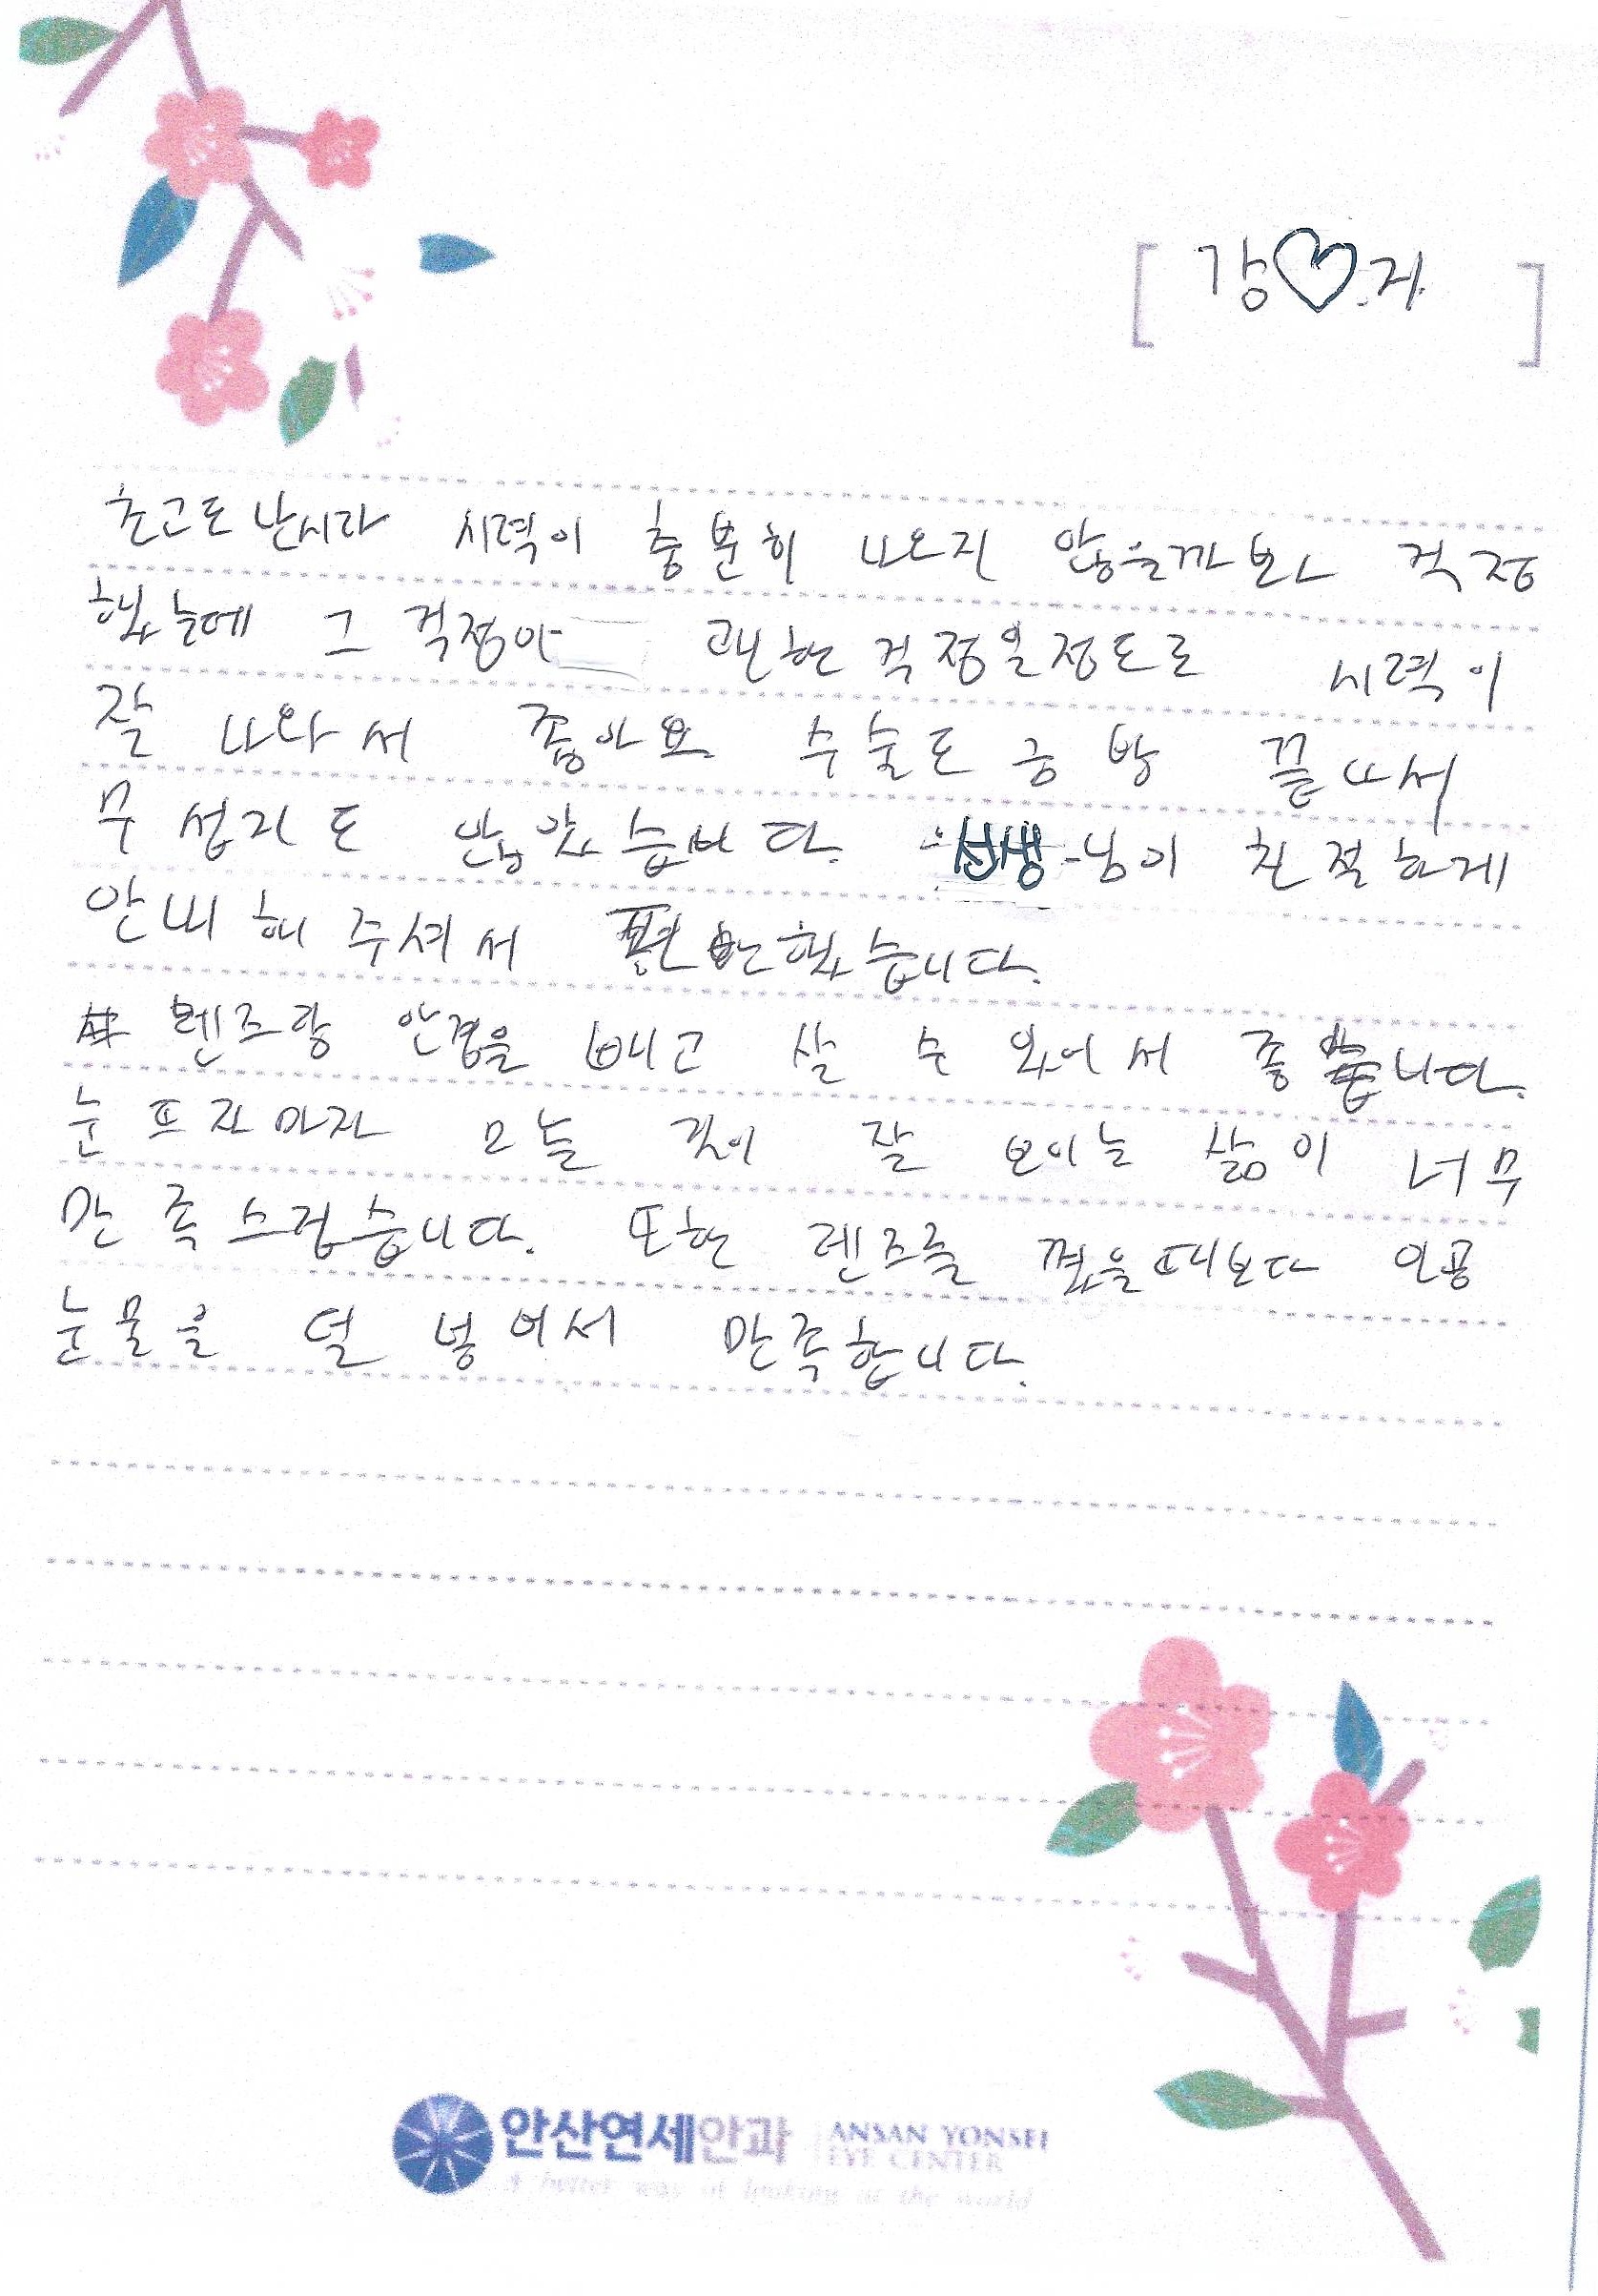 [ 강♡지 ]
초고도 난시라 시력이 충분히 나오지 않을까봐 걱정
했는데 그 걱정이 괜한 걱정일정도로 시력이
잘 나와서 좋아요 수술도 금방 끝나서
무섭지도 않았습니다. 선생님이 친절하게
안내해 주셔서 편안했습니다.
렌즈랑 안경을 빼고 살 수 있어서 좋습니다.
눈 뜨자마자 오늘 같이 잘 보이는 삶이 너무
만족스럽습니다. 또한 렌즈를 꼈을때보다 인공
눈물을 덜 넣어서 만족합니다.
안산연세안과 ANSAN YONSEI
EYE CENTER
A better way of looking at the world